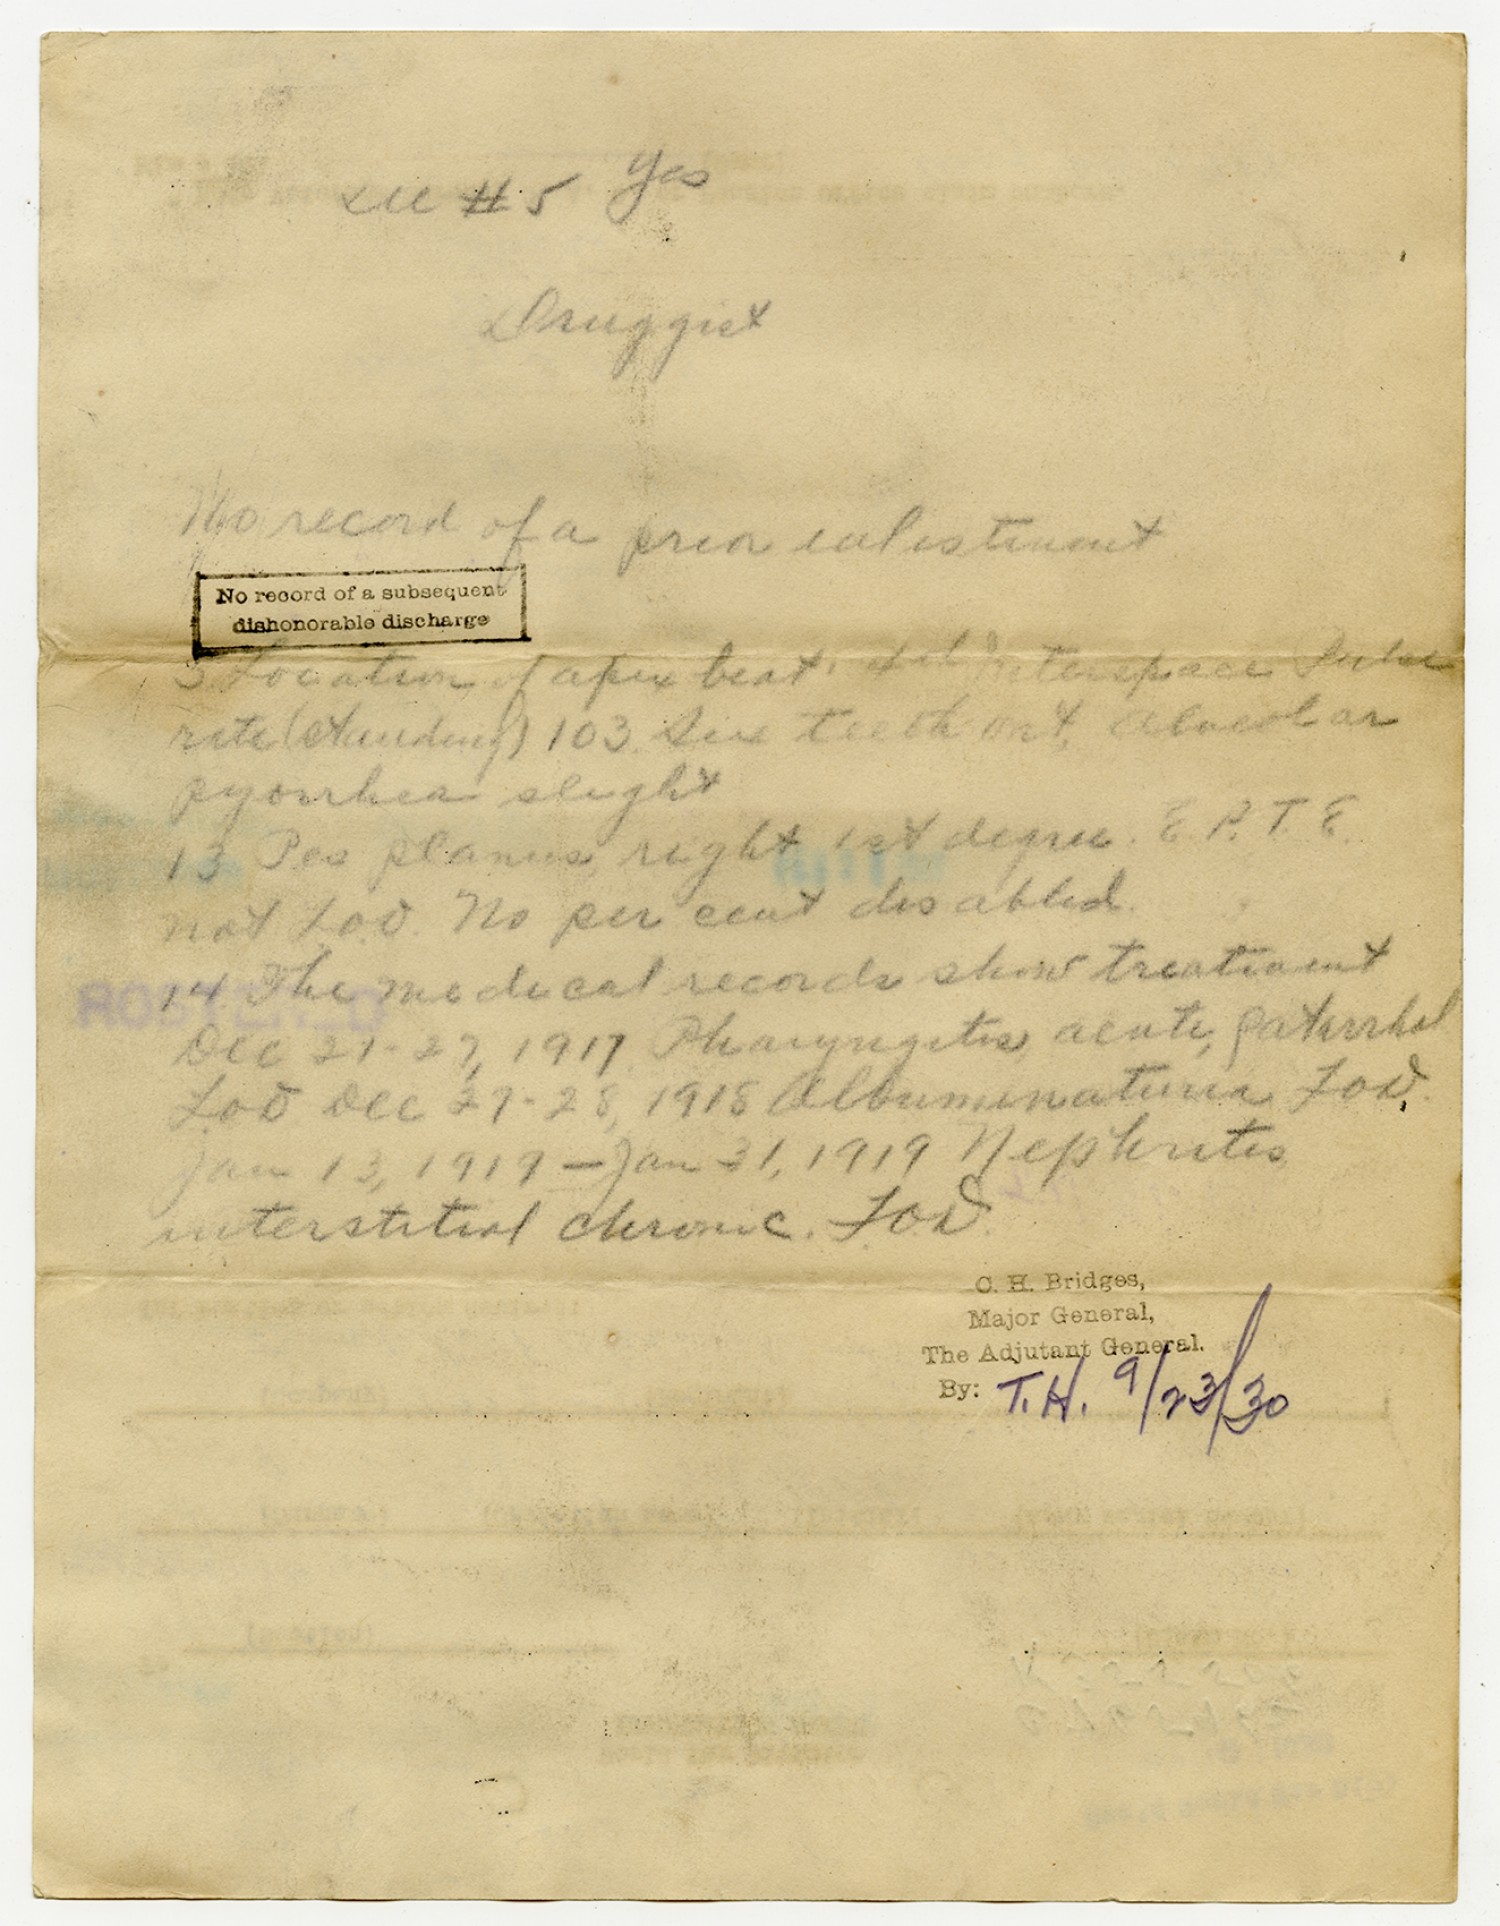 see # 5 Yes
Druggist
No record of a prior enlistment
No record of a subsequent
dishonorable discharge
5 Location of apex beat. 4th interspace Pulse
rate (standing) 103. Six teeth out, alveolar
pyorrhea slight
13 Pes planus, right 1st degree. E.P.T.E.
not L.O.D. No per cent disabled.
14 The medical records show treatment
Dec 21-27, 1917 Pharyngitis, acute, catarrhal
LOD Dec 27-28, 1918 Albumenaturia LOD.
Jan 13, 1919 – Jan 31, 1919 Nephritis
interstitial chronic. LOD.
ROSTERED
C. H. Bridges,
Major General,
The Adjutant General.
By: T.H. 9/23/30